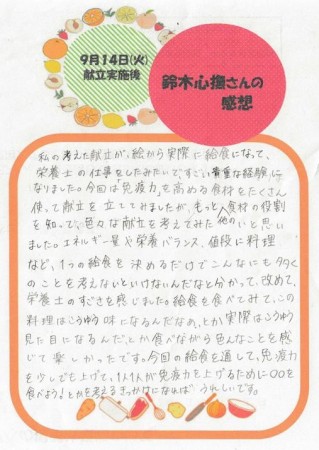 9月14日(火)
献立実施後
鈴木心撫さんの
感想
私の考えた献立が、絵から実際に給食になって、
栄養士の仕事をしたみたいで、すごい貴重な経験に
なりました。今回は「免疫力」を高める食材をたくさん
使って献立を立ててみましたが、もっと食材の役割
を知って、色々な献立を考えてみたいと思い
ました。エネルギー量や栄養バランス、値段に料理
など、1つの給食を決めるだけでこんなにも多く
のことを考えないといけないんだなと分かって、改めて、
栄養士のすごさを感じました。給食を食べてみて、この
料理はこうゆう味になるんだなぁ、とか実際はこうゆう
見た目になるんだ、とか食べながら色んなことを感
じて楽しかったです。今回の給食を通して、免疫力
を少しでも上げて、1人1人が免疫力を上げるために〇〇を
食べよう!とかを考えるきっかけになれば うれしいです。